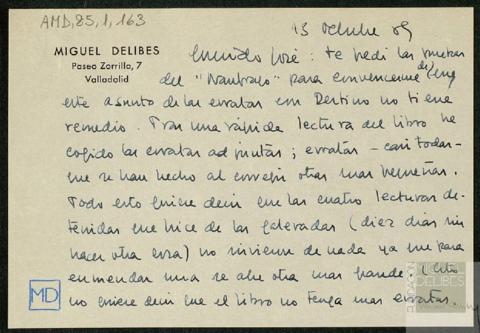 AMD,85,1,163
13 octubre 69
MIGUEL DELIBES
Paseo Zorrilla, 7
Valladolid
Querido José: te pedí las pruebas
del "Naufrago" para convencerme de que
este asunto de las erratas con Destino no tiene
remedio. Tras una rápida lectura del libro he
cogido las erratas adjuntas; erratas – casi todas –
que se han hecho al corregir otras mas pequeñas.
Todo esto quiere decir que las cuatro lecturas de-
tenidas que hice de las galeradas (diez dias sin
hacer otra cosa) no sirvieron de nada ya que para
enmendar una se abre otra mas grande. (Esto
no quiere decir que el libro no tenga mas erratas.
MD
FUNDACIÓN
DELIBES